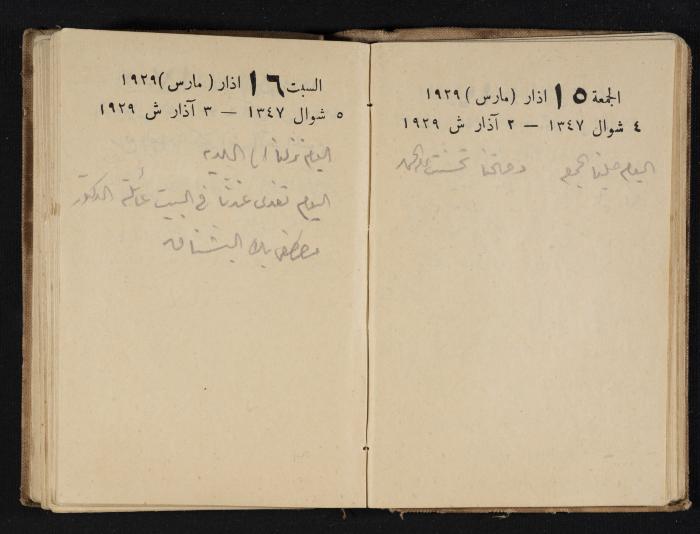 الجمعة ١٥ اذار (مارس) ١٩٢٩
٤ شوال ١٣٤٧ — ٢ آذار ش ١٩٢٩
اليوم صلينا الجمعة وصحتنا تحسنت والحمد
السبت ١٦ اذار (مارس) ١٩٢٩
٥ شوال ١٣٤٧ — ٣ آذار ش ١٩٢٩
اليوم نزلنا الى البلدية
اليوم تغدى عندنا في البيت عائلة الدكتور
مصطفى بك البشناق